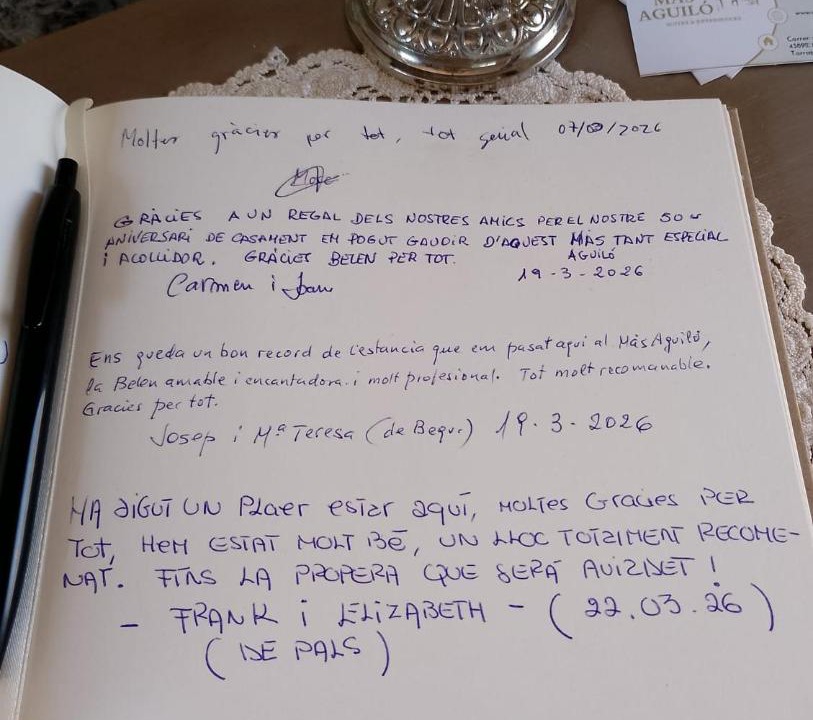 MAS
AGUILÓ
Carrer
43892
Moltes gràcies per tot, tot genial 07/03/2026
GRÀCIES A UN REGAL DELS NOSTRES AMICS PER EL NOSTRE 50
ANIVERSARI DE CASAMENT EM POGUT GAUDIR D'AQUEST MAS TANT ESPECIAL
AGUILÓ
i ACOLLIDOR. GRÀCIES BELEN PER TOT.
19-3-2026
Carmen i Joan
Ens queda un bon record de l'estancia que em pasat aquí al Màs Aguiló,
la Belen amable i encantadora. i molt profesional. Tot molt recomanable.
Gracies per tot.
Josep i Mª Teresa (de Begur) 19.3.2026
HA SIGUT UN PLaer estar aquí, MOLTES GraciES PER
TOT, HEM ESTAT MOLT BÉ, UN LLOC TOTALMENT RECOME-
NAT. FINS LA PROPERA QUE SERÁ AVIADET!
- FRANK i ELIZABETH - (22.03.26)
(DE PALS)